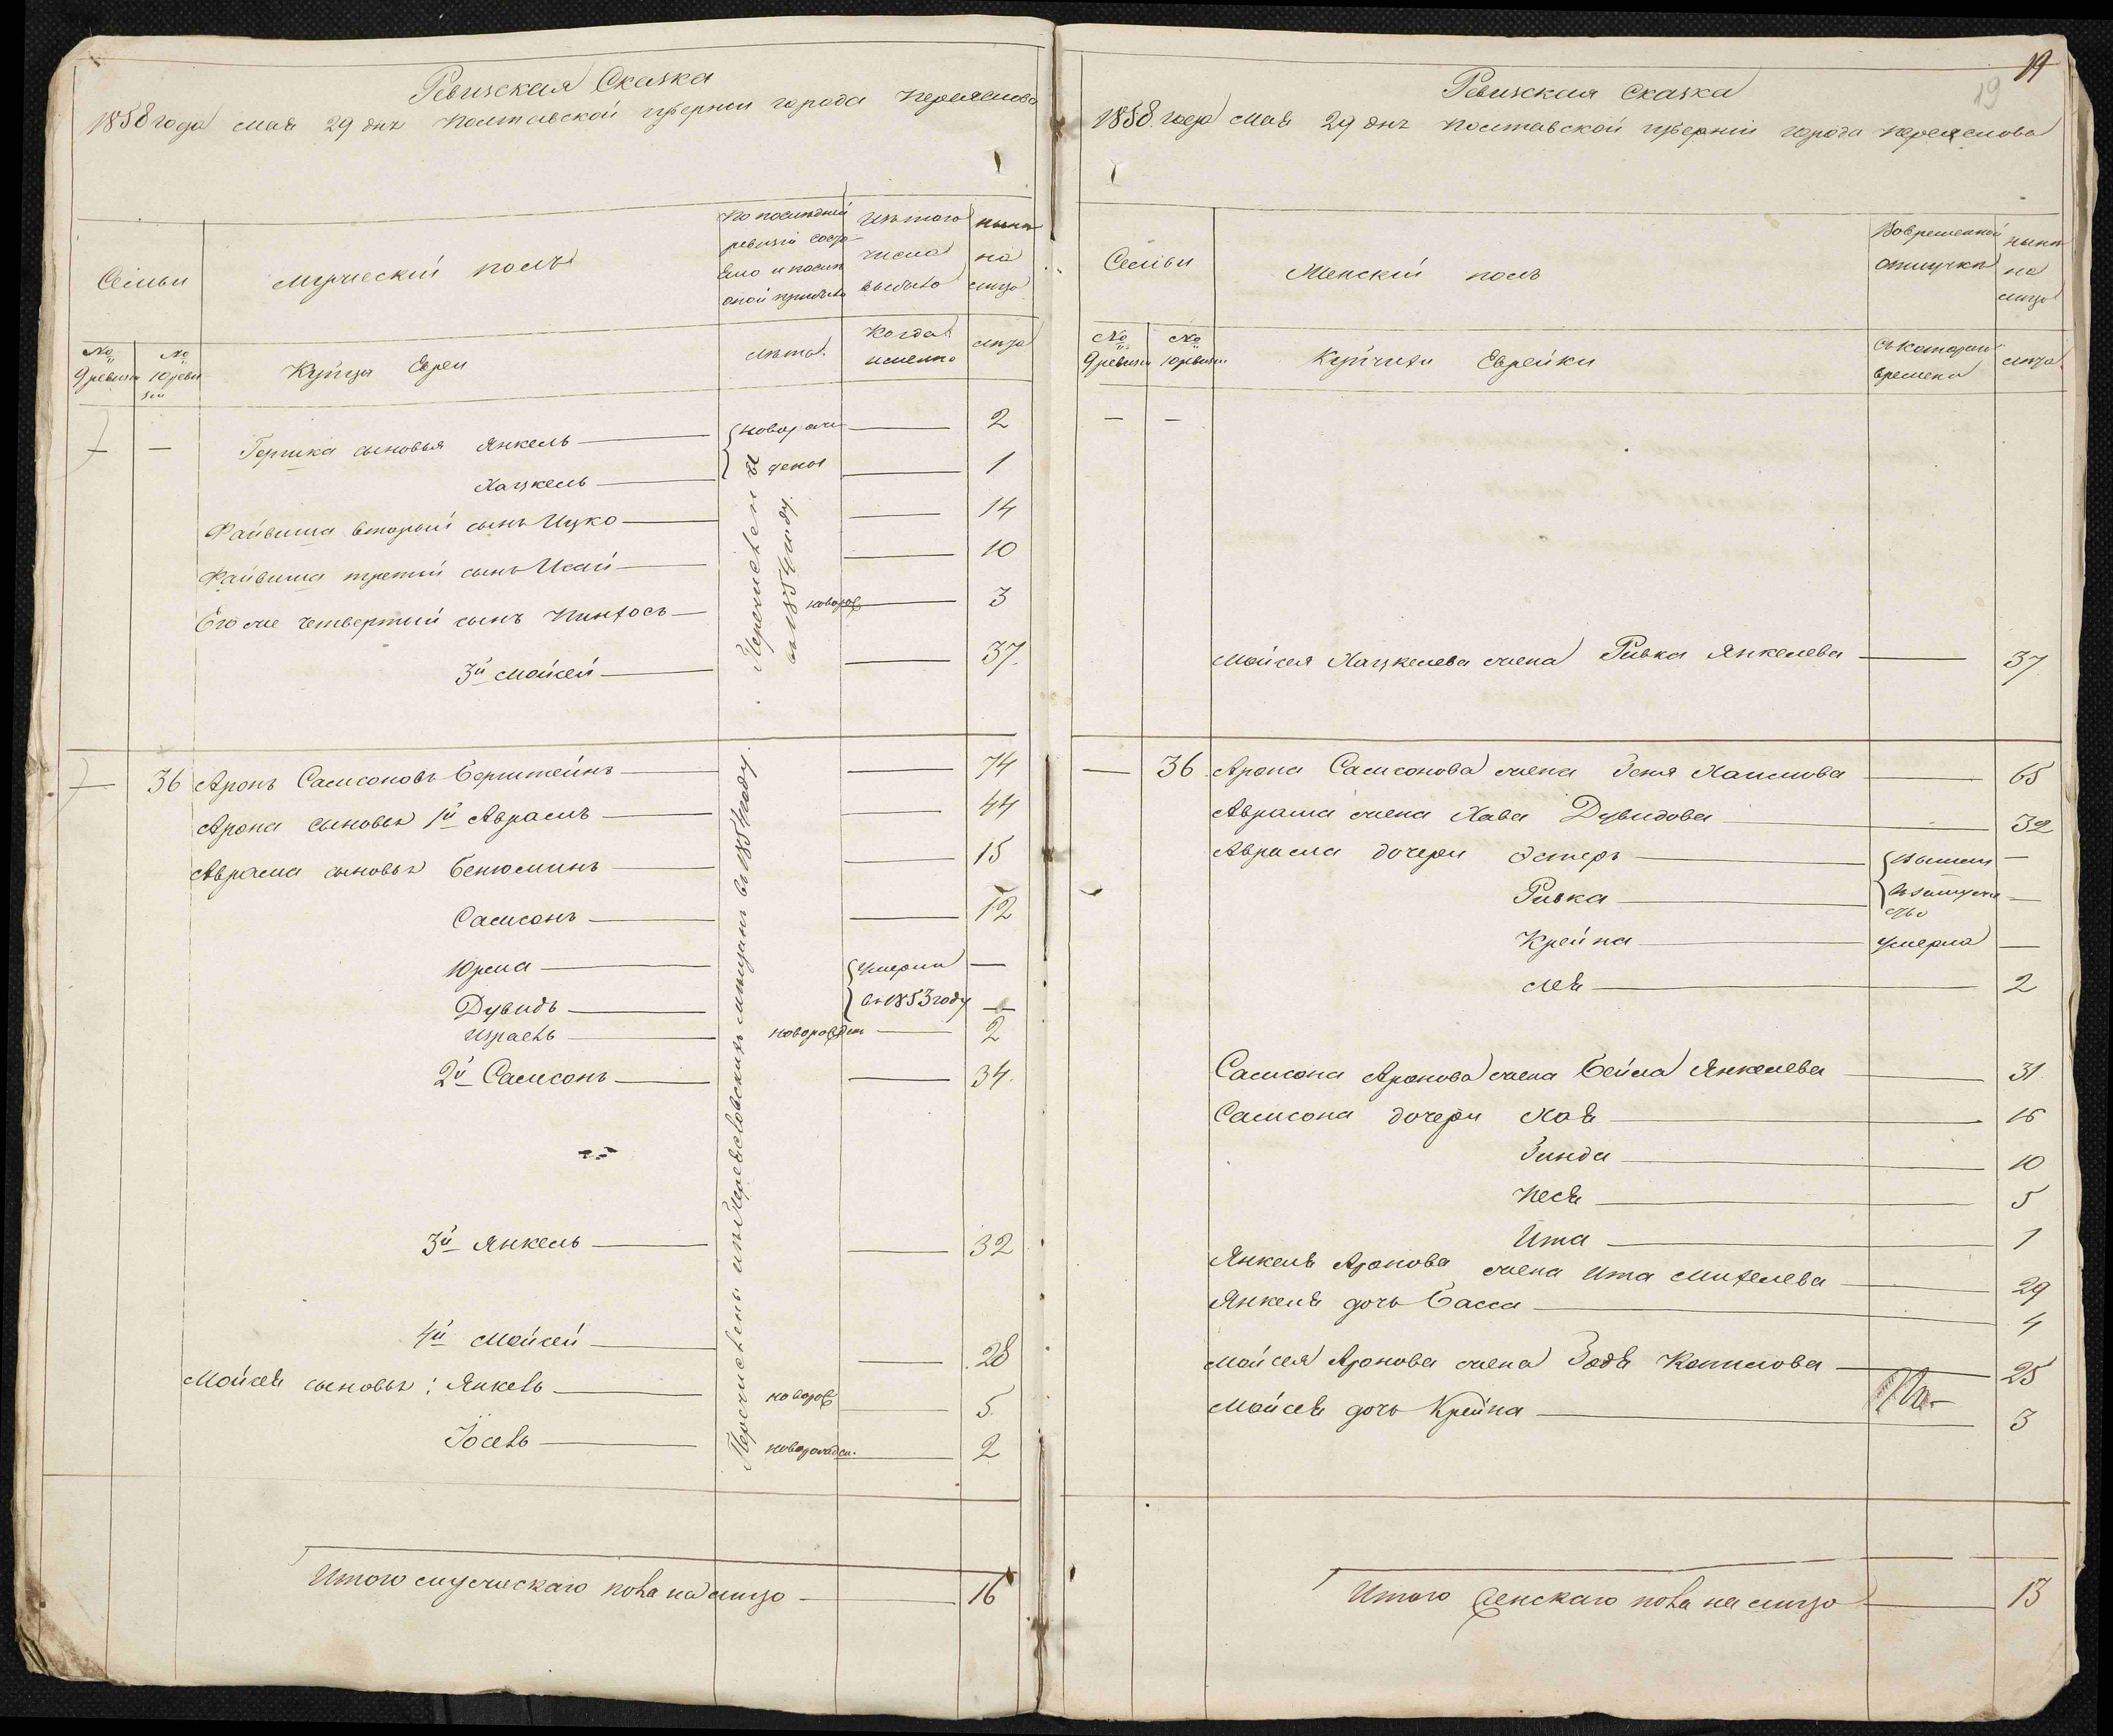 Ревизская Сказка
1858 года мая 29 дня Полтавской губернии города Переяслова
Семьи
Мужеский полъ
По последней ревизіи состояло и после оной прибыло
Изъ того числа выбыло
ныне на лицо
№ 9 ревизіи
№ 10 ревизіи
Купцы Евреи
лета.
Когда именно
лица
— — Гершка сыновья Янкель — новорож — 2
Хацкель — дены — 1
Файвиша вторый сынъ Ицко — 14
Файвиша третій сынъ Исай — 10
Его же четвертый сынъ Пинхосъ — новорож — 3
3й Мойсей — 37.
Перечислены въ 1854 году.
— 36 Аронъ Самсоновъ Берштейнъ — 74
Арона сыновья 1й Аврамъ — 44
Аврама сыновья Бенюминъ — 15
Самсонъ — 12
Юрма — Умерли —
Дувидъ — въ 1853 году —
Израель — новорожден — 2
2й Самсонъ — 34.
3й Янкель — 32
4й Мойсей — 28
Мойсея сыновья: Янкель — новорож — 5.
Іосель — новорожден. — 2
Перечислены изъ Переяславскихъ мещанъ въ 1854 году.
Итого мужескаго пола на лицо — 16
19
19
Ревизская Сказка
1858 года мая 29 дня Полтавской губерніи города Переяслова
Семьи
Женскій полъ
Во временной отлучке
ныне на лицо
№ 9 ревизіи
№ 10 ревизіи
Купчихи Еврейки
Съ котораго времени
лица
— —
Мойсея Хацкелева жена Ривка Янкелева — 37
— 36 Арона Самсонова жена Зеня Хаимова — 65
Аврама жена Хава Дувидова — 32
Аврама дочери Эстеръ — Вышли —
Ривка — въ замужество —
Крейна — умерла —
Лея — 2
Самсона Аронова жена Бейла Янкелева — 31
Самсона дочери Хая — 16
Зинда — 10
Песя — 5
Ита — 1
Янкеля Аронова жена Ита Михелева — 29
Янкеля дочь Басса — 4
Мойсея Аронова жена Зодя Копилова — 25
Мойсея дочь Крейна — 3
Итого женскаго пола на лицо — 13